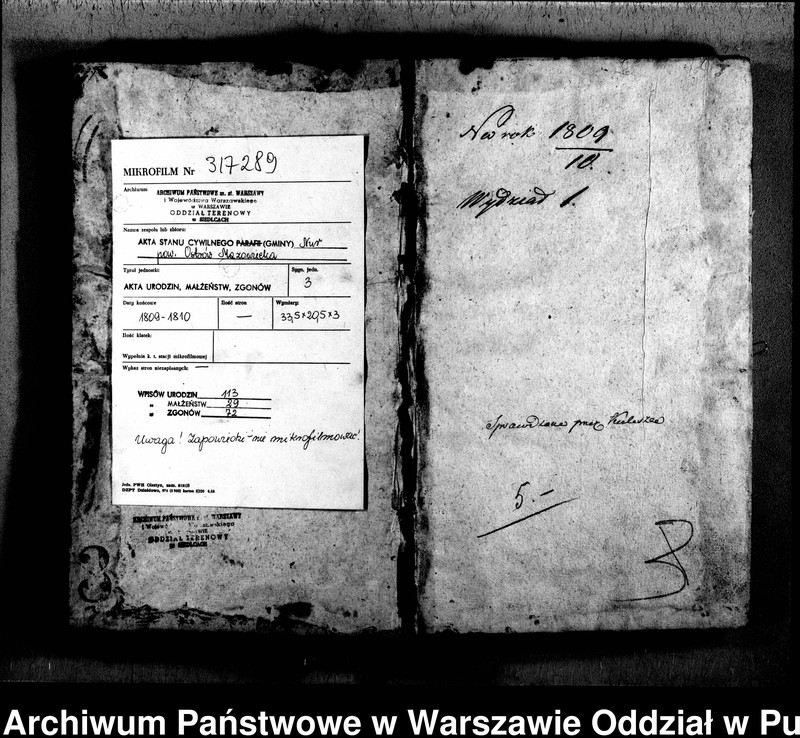 MIKROFILM Nr 317289
Archiwum
ARCHIWUM PAŃSTWOWE m. st. WARSZAWY
i Województwa Warszawskiego
w WARSZAWIE
ODDZIAŁ TERENOWY
w SIEDLCACH
Nazwa zespołu lub zbioru:
AKTA STANU CYWILNEGO PARAFII (GMINY) Nur
pow. Ostrów Mazowiecka
Tytuł jednostki:
Sygn. jedn.
AKTA URODZIN, MAŁŻEŃSTW, ZGONÓW
3
Daty końcowe
Ilość stron
Wymiary:
1809-1810
—
33,5x20,5x3
Ilość klatek:
Wypełnia k. t. stacji mikrofilmowej
Wykaz stron niezapisanych: —
WPISÓW URODZIN 113
" MAŁŻEŃSTW 29
" ZGONÓW 72
Uwaga! Zapowiedzi - nie mikrofilmować!
ARCHIWUM PAŃSTWOWE WARSZAWY
ODDZIAŁ TERENOWY
w SIEDLCACH
3
Na rok 1809
10.
Wydział 1.
Sprawdzone przez
5.-
Archiwum Państwowe w Warszawie Oddział w Pu